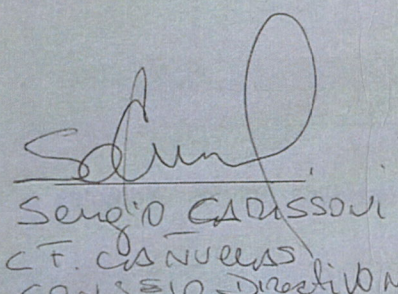 Sergio CARISSONI
CT. CAÑUELAS
CONSEJO Directivo N